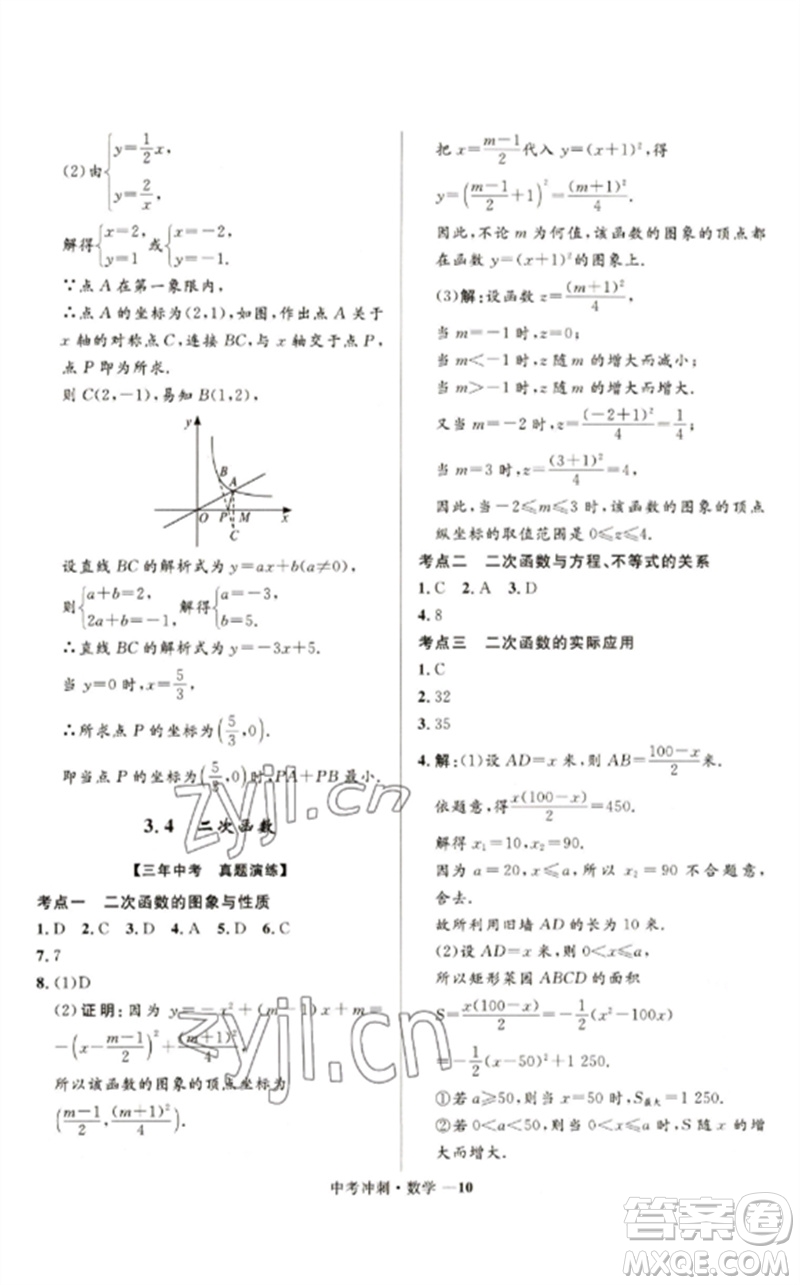 (2)由{y=1/2 x, y=2/x,
解得{x=2, y=1 或{x=-2, y=-1.
∵点 A 在第一象限内,
∴点 A 的坐标为(2,1),如图,作出点 A 关于
x 轴的对称点 C,连接 BC,与 x 轴交于点 P,
点 P 即为所求.
则 C(2,-1),易知 B(1,2),
y
B
A
O P M x
C
设直线 BC 的解析式为 y=ax+b(a≠0),
则{a+b=2, 2a+b=-1, 解得{a=-3, b=5.
∴直线 BC 的解析式为 y=-3x+5.
当 y=0 时,x=5/3,
∴所求点 P 的坐标为(5/3,0).
即当点 P 的坐标为(5/3,0)时,PA+PB 最小.
3.4 二次函数
【三年中考 真题演练】
考点一 二次函数的图象与性质
1. D 2. C 3. D 4. A 5. D 6. C
7. 7
8. (1)D
(2)证明:因为 y=-x²+(m-1)x+m=
-(x-(m-1)/2)²+(m+1)²/4,
所以该函数的图象的顶点坐标为
((m-1)/2,(m+1)²/4).
把 x=(m-1)/2代入 y=(x+1)²,得
y=((m-1)/2+1)²=(m+1)²/4.
因此,不论 m 为何值,该函数的图象的顶点都
在函数 y=(x+1)²的图象上.
(3)解:设函数 z=(m+1)²/4,
当 m=-1 时,z=0;
当 m<-1 时,z 随 m 的增大而减小;
当 m>-1 时,z 随 m 的增大而增大.
又当 m=-2 时,z=(-2+1)²/4=1/4;
当 m=3 时,z=(3+1)²/4=4,
因此,当-2≤m≤3 时,该函数的图象的顶点
纵坐标的取值范围是 0≤z≤4.
考点二 二次函数与方程、不等式的关系
1. C 2. A 3. D
4. 8
考点三 二次函数的实际应用
1. C
2. 32
3. 35
4. 解:(1)设 AD=x 米,则 AB=(100-x)/2米.
依题意,得x(100-x)/2=450.
解得 x₁=10,x₂=90.
因为 a=20,x≤a,所以 x=90 不合题意,
舍去.
故所利用旧墙 AD 的长为 10 米.
(2)设 AD=x 米,则 0<x≤a,
所以矩形菜园 ABCD 的面积
S=x(100-x)/2=-1/2(x²-100x)
=-1/2(x-50)²+1 250.
①若 a≥50,则当 x=50 时,S最大=1 250.
②若 0<a<50,则当 0<x≤a 时,S 随 x 的增大
而增大.
中考冲刺·数学 —10
zyjl.cn
zyjl.cn
答案卷
MXQE.COM